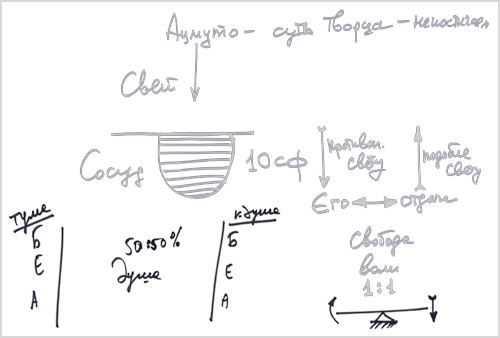 Ацмуто - суть Творца - непостигаем
Свет
Сосуд
10 сф
противоп. свету
подобие свету
Эго
отдачи
Б
Е
А
50:50%
Душа
к.душа
Б
Е
А
Свобода
воли
1:1